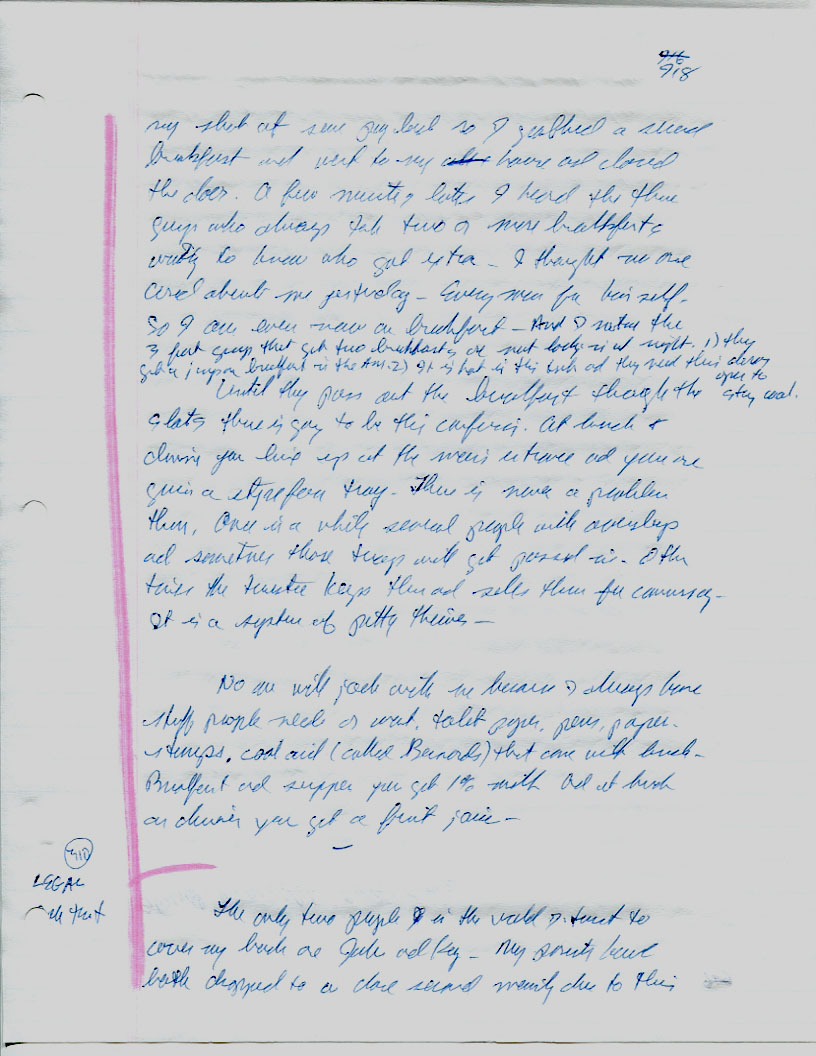 918
my shot at some pay back so I grabbed a second
breakfast and went to my house and closed
the door. A few minutes later I heard the three
guys who always take two or more breakfasts
to know who got extra - I thought no one
cared about me yesterday - Every man for himself.
So I am even now on breakfast - And I notice the
3 guys that get two breakfasts are not at night. 1) they
get a breakfast in the AM. 2) It is hot in this tank and they need this door
open to
stay cool.
Until they pass out the breakfast through the
slots there is going to be this confusion. At lunch &
dinner you line up at the main entrance and you are
given a styrofoam tray. There is never a problem
then, Once in a while several people will oversleep
and sometimes those trays will get passed in. Other
times the trustee keeps them and sells them for commissary -
It is a system of petty thieves -
No one will jack with me because I always have
stuff people need or want, toilet paper, pens, paper,
stamps, cool aid (called Bernards) that come with lunch -
Breakfast and supper you get 1% milk and at lunch
or dinner you get a fruit juice -
918
LEGAL
The only two people in the world I trust to
cover my back are and Kay - My parents have
both dropped to a close second mainly due to this